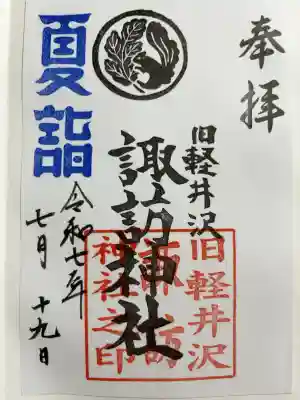 奉拝
旧軽井沢
諏訪神社
旧軽井沢
諏訪
神社之印
夏詣
令和七年
七月 十九日